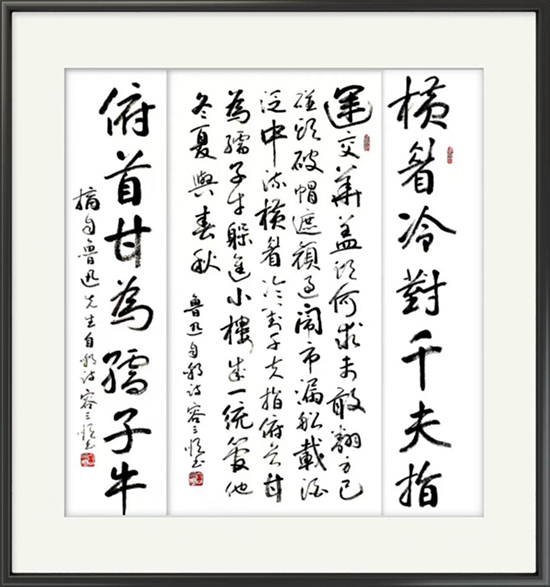 橫眉冷對千夫指
運交華蓋欲何求未敢翻身已
碰頭破帽遮顏過鬧市漏船載酒
泛中流橫眉冷對千夫指俯首甘
為孺子牛躲進小樓成一統管他
冬夏與春秋 魯迅自嘲詩容三书
俯首甘為孺子牛
摘自魯迅先生自嘲詩容三书